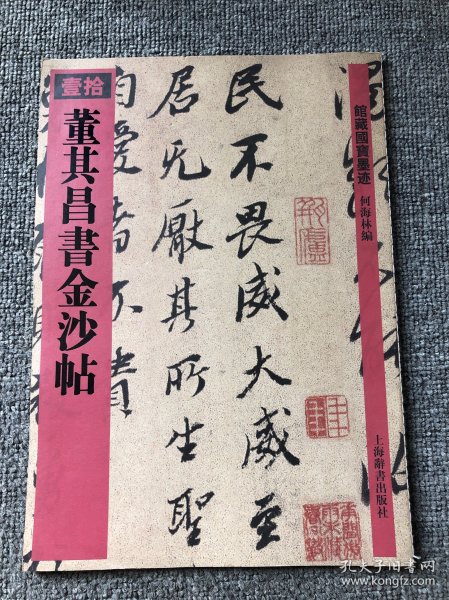 拾壹
董其昌書金沙帖
館藏國寶墨迹
何海林編
上海辭書出版社
民不畏威大威至
居无厭其所生聖
孔夫子旧书网
www.kongfz.com